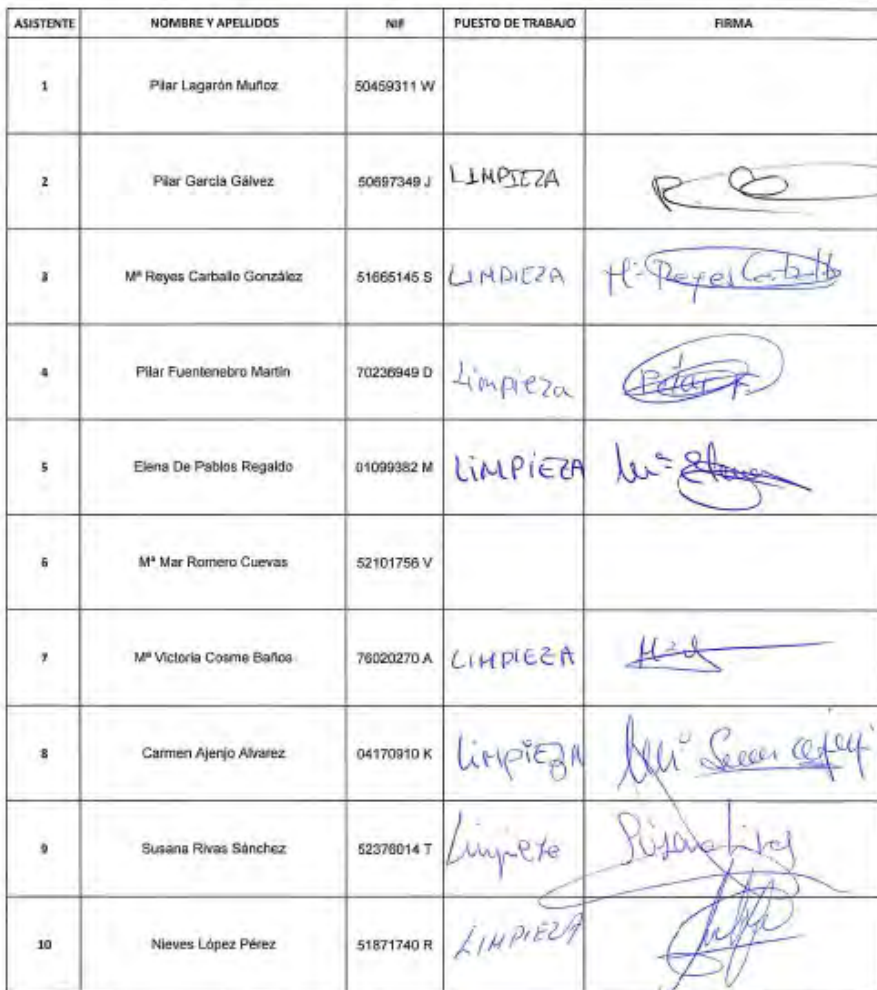 ASISTENTE NOMBRE Y APELLIDOS NIF PUESTO DE TRABAJO FIRMA
1 Pilar Lagarón Muñoz 50459311 W
2 Pilar García Gálvez 50697349 J LIMPIEZA
3 Mª Reyes Carballo González 51665145 S LIMPIEZA Mª Reyes Carballo
4 Pilar Fuentenebro Martín 70236949 D Limpieza Pilar F.
5 Elena De Pablos Regaldo 01099382 M LIMPIEZA Mª Elena
6 Mª Mar Romero Cuevas 52101756 V
7 Mª Victoria Cosme Baños 76020270 A LIMPIEZA
8 Carmen Ajenjo Alvarez 04170910 K LIMPIEZA
9 Susana Rivas Sánchez 52376014 T Limpieza Susana Rivas
10 Nieves López Pérez 51871740 R LIMPIEZA